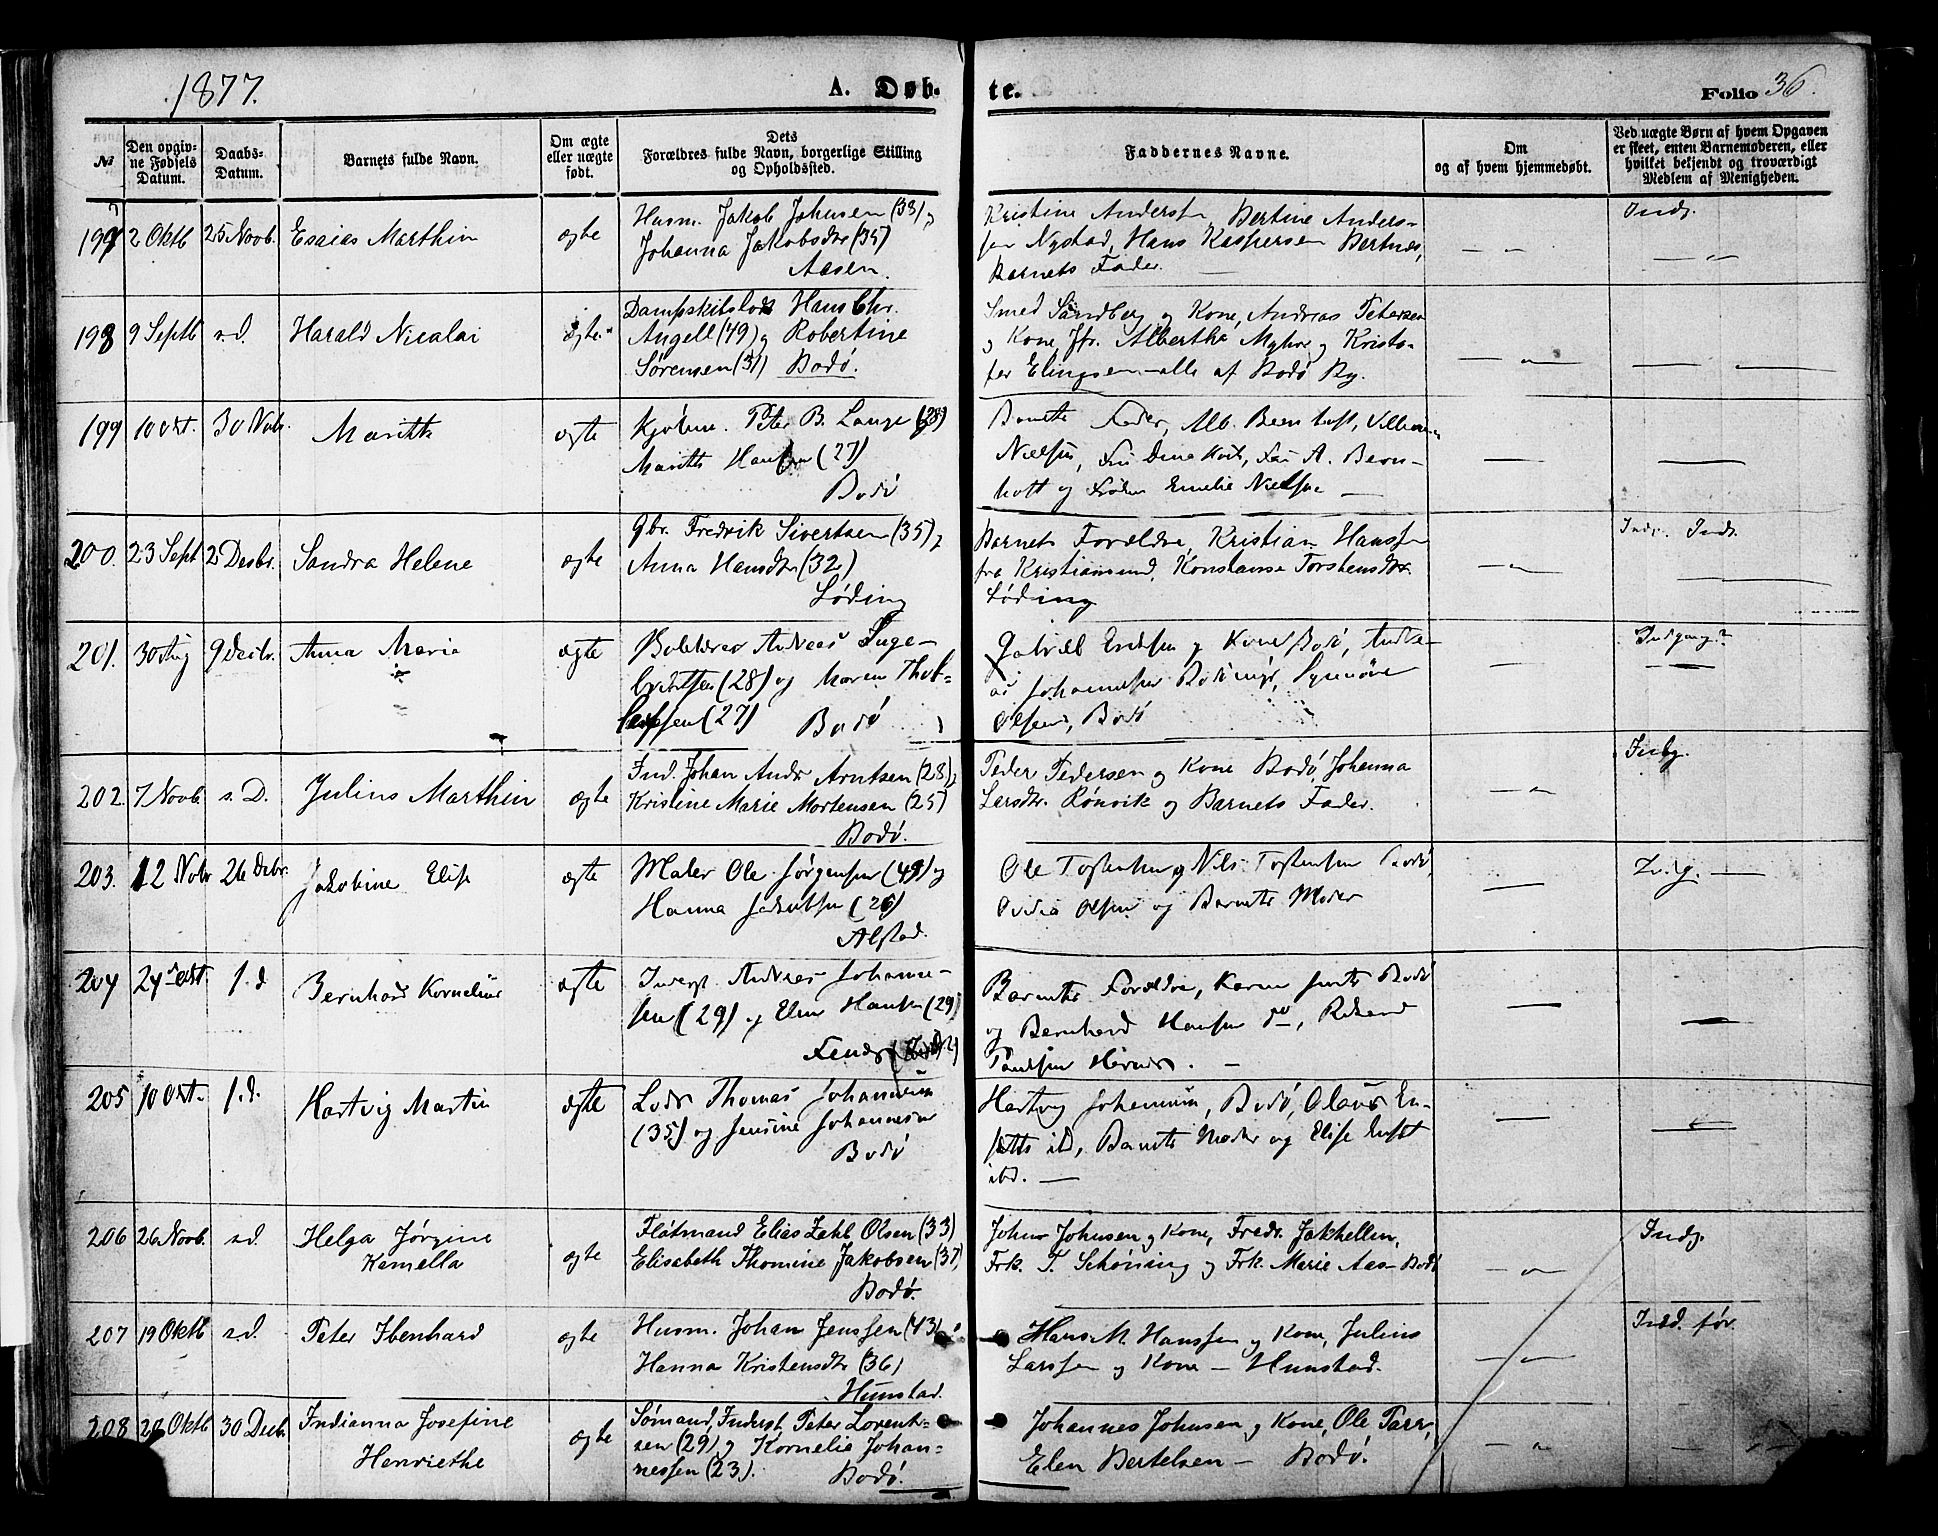 1877.
A. Døb-
te.
Folio 36.
№
Den opgiv-
ne Fødsels
Datum.
Daabs-
Datum.
Barnets fulde Navn.
Om ægte
eller uægte
født.
Dets
Forældres fulde Navn, borgerlige Stilling
og Opholdssted.
Faddernes Navne.
Om
og af hvem hjemmedøbt.
Ved uægte Børn af hvem Opgaven
er skeet, enten Barnemoderen, eller
hvilket bekjendt og troværdigt
Medlem af Menigheden.
197 2 Oktb 25 Novb. Esaias Marthin ægte
Husm. Jakob Johnsen (33) og
Johanna Jakobsdtr (35)
Aasen.
Kristine Andersen, Bertine Anders-
sen Nystad, Hans Kaspersen Bertnes,
Barnets Fader. —
Indg.
198 9 Septb s.d. Harald Nicolai ægte
Dampskibslods Hans Chr.
Angell (49) og Robertine
Sørensen (31) Bodø.
Smed Sandberg og Kone, Andreas Petersen
og Kone, Jfr. Albertha Myhre og Kristo-
fer Elingsen — alle af Bodø By.
199 10 Okt. 30 Novbr. Marith ægte
Kjøbm. Peter B. Lange (28)
Marith Hansen (27)
Bodø
Barnets Fader, Alb. Beenhoft, Vilhelm
Nielsen, Fru Dina Koch, Fru A. Been-
hoft og Frøken Emelie Nielsen —
200. 23 Sept 2 Decbr. Sandra Helene ægte
Gbr. Fredrik Sivertsen (35) og
Anna Hansdtr (32)
Løding
Barnets Forældre, Kristian Hanssen
fra Kristiansund, Konstanse Torstensdtr
Løding
Indg. Indr.
201. 30 Aug 9 Decbr. Anna Marie ægte
Andreas Inge-
brigtsen (28) og Maren Thob-
(27) Bodø
Gabriel Eriksen og Kone Bodø, Andre-
as Johannesen Synnøve
Olsen, Bodø
202. 7 Novb. s.D. Julius Marthin ægte
Ind. Johan Andr Arntsen (28) og
Kristine Marie Mortensen (25)
Bodø.
Peder Pedersen og Kone Bodø, Johanna
Larsdtr. Rønvik og Barnets Fader.
Indg.
203. 12 Novbr 26 Decbr. Jakobine Elise ægte
Maler Ole Jørgensen (49) og
Hanna Jakobsen (26)
Alstad.
Ole Tostensen og Nils Tostensen Bodø,
Ovidia Olsen og Barnets Moder
204 24 Okt. s.d Bernhard Kornelius ægte
Inderst Andreas Johanne-
sen (29) og Elen Hansen (29)
Barnets Forældre, Karen Bodø
og Bernhard Hansen do, Rikard
Poulsen Hernes. —
205 10 Okt. s.d. Hartvig Martin ægte
Lods Thomas Johannesen
(35) og Jensine Johannesen
Bodø
Hartvig Johannesen, Bodø, Olaus
ibd, Barnets Moder og Elise
ibd. —
206 26 Novb. s.d. Helga Jørgine
Kamella
ægte
Fløtmand Elias Zahl Olsen (33)
Elisabeth Thomine Jakobsen (37)
Bodø.
Johan Johnsen og Kone, Fredr. Jakhelln,
Frk. T. Schøning og Frk. Marie Aas — Bodø
Indg.
207 19 Oktb s.d. Peter Ibenhard ægte
Husm. Johan Jenssen (43) og
Hanna Kristensdtr (36)
Hunstad.
Hans M. Hanssen og Kone, Julius
Larssen og Kone — Hunstad.
Ind. før.
208 28 Oktb 30 Decb. Indianna Josefine
Henriethe
ægte
Sømand, Inderst, Peter Lorent-
sen (29) og Kornelia Johan-
nessen (23).
Bodø.
Johannes Johnsen og Kone, Ole Parr,
Elen Bertelsen — Bodø.